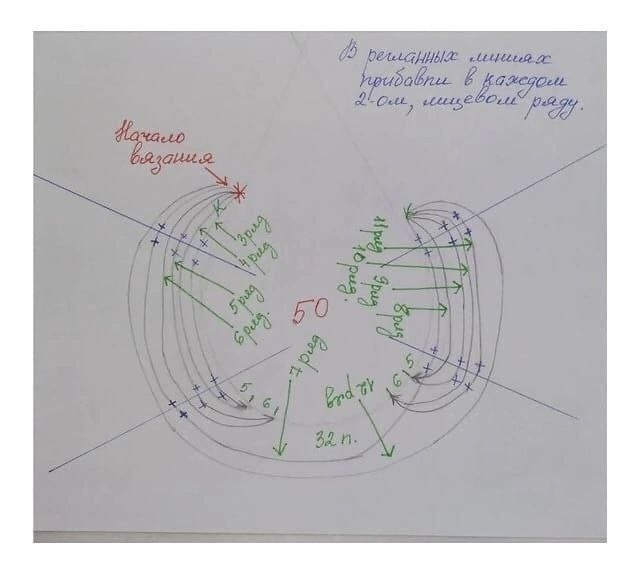 В регланных линиях
прибавки в каждом
2-ом, лицевом ряду.
Начало
вязания
К
3 ряд
4 ряд
5 ряд
6 ряд.
50
11 ряд
10 ряд.
9 ряд
8 ряд
7 ряд
12 ряд
5,
6,
6,
5
32 п.